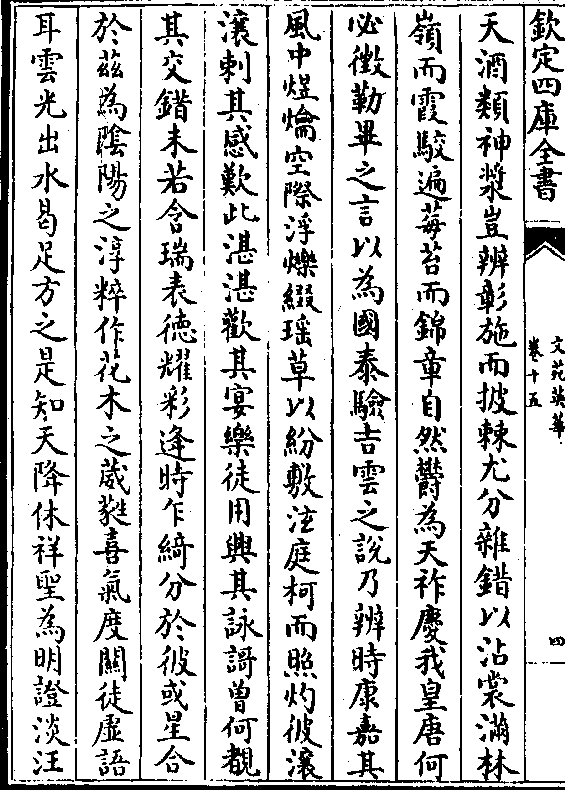 欽定四庫全書
文苑英華
卷十五
四
天酒類神漿豈辨彰施而披棘尤分雜錯以沾裳滿林
嶺而霞駮遍莓苔而錦章自然欝為天祚慶我皇唐何
必徵勒畢之言以為國泰驗吉雲之說乃辨時康嘉其
風中煜爚空際浮爍綴瑶草以紛敷注庭柯而照灼彼瀼
瀼刺其感歎此湛湛歡其宴樂徒用興其詠謌曾何覩
其交錯未若含瑞表徳耀彩逢時乍綺分於彼或星合
於茲為陰陽之淳粹作花木之葳蕤喜氣度關徒虛語
耳雲光出水曷足方之是知天降休祥聖為明證淡汪